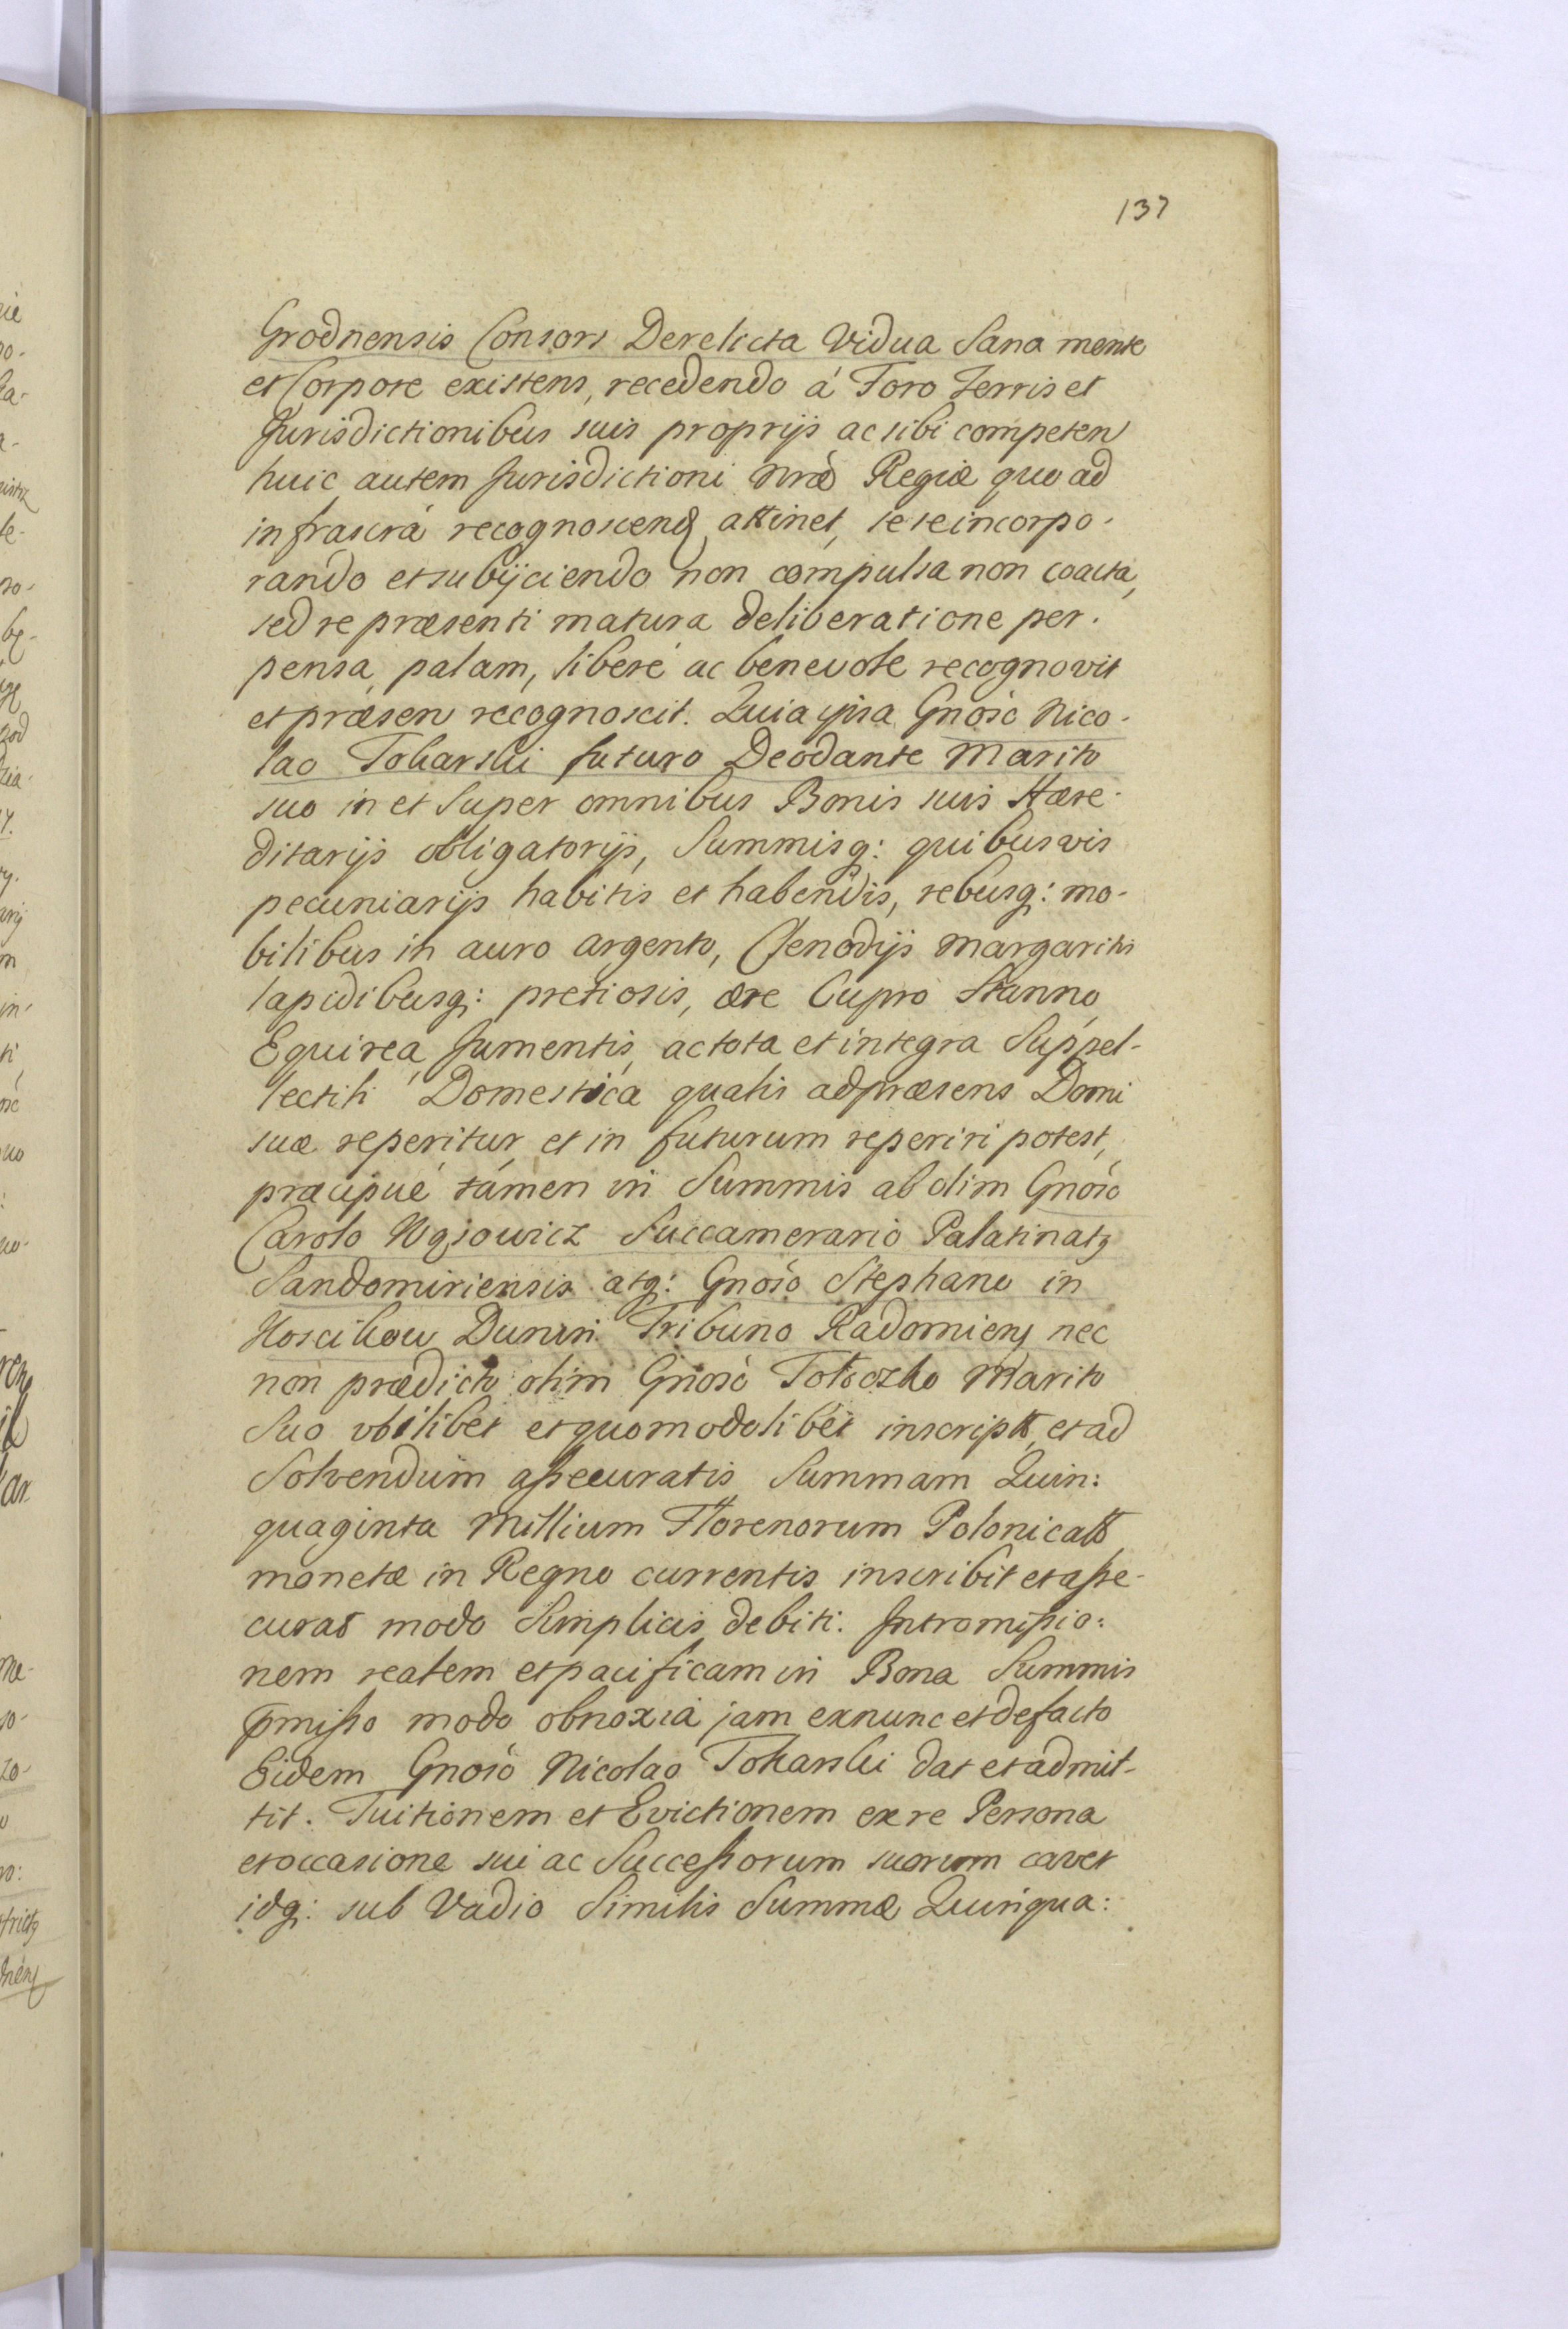 137
Grodnensis Consors Derelicta Vidua Sana mente
et Corpore existens, recedendo á Foro Terris et
Jurisdictionibus suis proprijs ac sibi competen
huic autem Jurisdictioni nræ Regiæ quo ad
infrascrá recognoscend attinet, sese incorpo-
rando et subijciendo non compulsa non coacta,
sed re præsenti matura deliberatione per-
pensa, palam, liberé ac benevole recognovit
et præsen recognoscit. Quia ipsa Gnosó Nico-
lao Tokarski futuro Deodante Marito
suo in et Super omnibus Bonis suis Hære-
ditarijs obligatorijs, Summisq: quibusvis
pecuniarijs habitis et habendis, rebusq: mo-
bilibus in auro argento, Clenodijs margaritis
lapidibusq: pretiosis, ære Cupro Stanno,
Equirea, Jumentis, ac tota et integra Suppel-
lectili Domestica qualis ad præsens Domi
suæ reperitur, et in futurum reperiri potest,
præcipué támen in Summis ab olim Gnosó
Carolo Wąsowicz Succamerario Palatinatq
Sandomiriensis atq: Gnosó Stephano in
Dunin Tribuno Radomiens nec
non prædicto olim Gnosó Tołoczko Marito
Suo ubilibet et quomodolibet inscriptt, et ad
Solvendum assecuratis Summam Quin:
quaginta Millium Florenorum Polonicall
monetæ in Regno currentis inscribit et asse-
curat modo Simplicis debiti. Intromissio:
nem realem et pacificam in Bona Summis
pmisso modo obnoxia jam exnunc et defacto
Eidem Gnosó Nicolao Tokarski dat et admit-
tit. Tuitionem et Evictionem ex re Persona
et occasione sui ac Successorum suorum cavet
idq: sub Vadio Similis Summæ Quinqua: